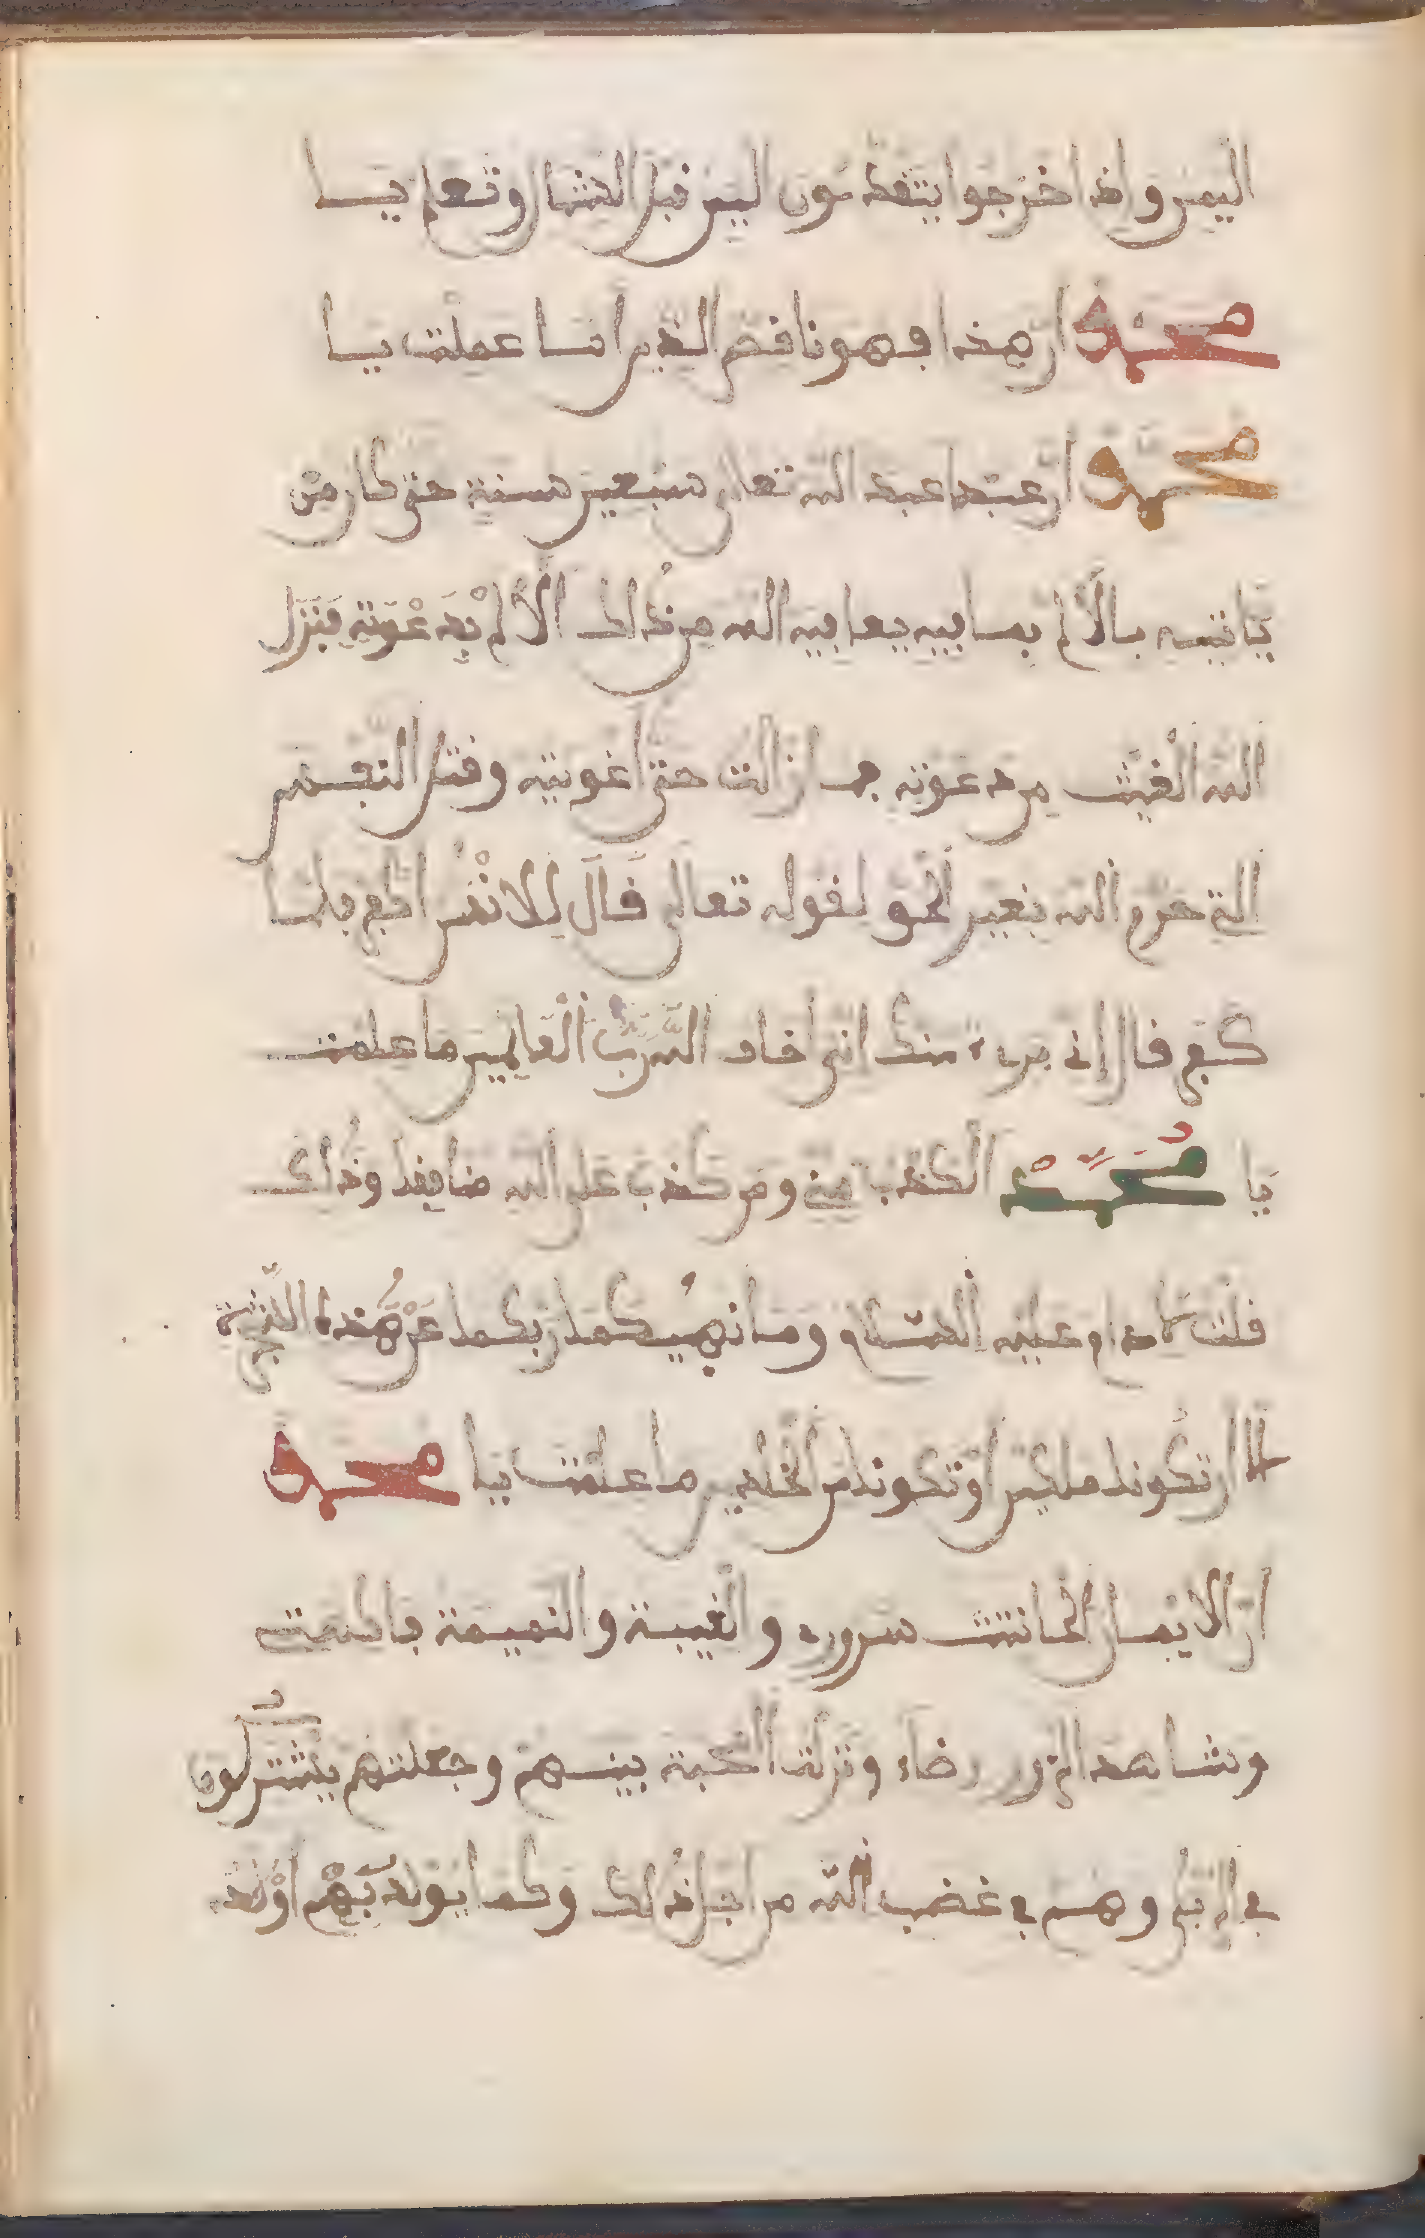 اليمين واذا خرجوا يتقدمون اليمين قبل الشمال وتعلم يا
محمد ان هذا فهو ناقص الدين اما علمت يا
محمد ان عبدا عبد الله تعالى سبعين سنة حتى كان من
ياتيه بالالم بصابيه يعابيه الله من ذلك الالم بدعوته ينزل
الله الغيث من دعوته فما زالت حتى اغويته وقتل النفس
التي حرم الله بغير الحق لقوله تعالى قال للانسن اكفر فلما
كفر قال إني بريء منك اني أخاف الله رب العالمين ما علمت
يا محمد الكذب مني ومن كذب على الله صادفه وذلك
قلت لادم عليه السلام وما نهيكما ربكما عن هذه الشجرة
الا ان تكونا ملكين او تكونا من الخلدين ما علمت يا محمد
ان الايمان الحانث سروره والغيبة والنميمة فاكهتي
وشاهد الزور رضاء ونزلت المحبة بينهم وجعلتهم يشتركون
في الربح وهم في غضب الله من اجل ذلك وكما يولد بهم اولد